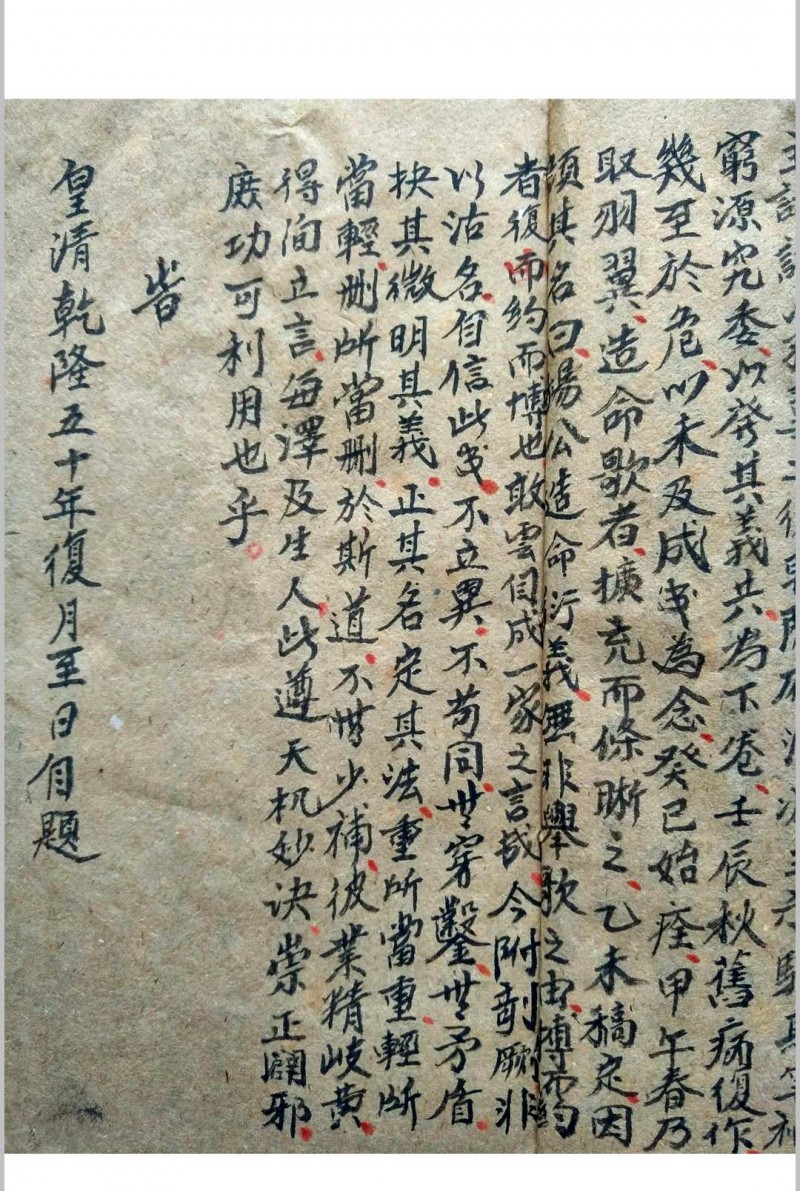 窮源究委以發其義共為下卷壬辰秋舊病復作
幾至於危以未及成書為念癸巳始痊甲午春乃
取羽翼造命歌者擴充而條晰之乙未稿定因
額其名曰楊公造命衍義無非舉歌之由博而約
者復而約而博也敢雲自成一家之言哉今附剞劂非
以沽名自信此書不立異不苟同無穿鑿無矛盾
抉其微明其義正其名定其法重所當重輕所
當輕刪所當刪於斯道不無少補彼業精岐黃
得向立言每澤及生人此遵天机妙诀崇正闢邪
庶功可利用也乎
峕
皇清乾隆五十年復月至日自題